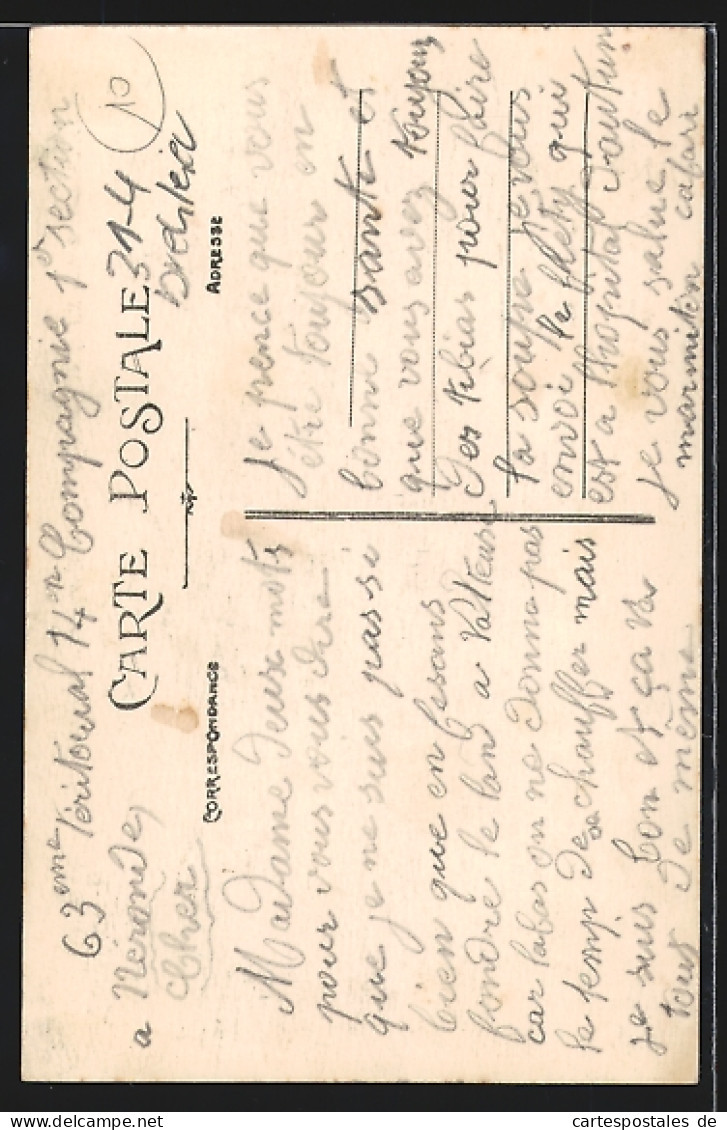 63eme Téritorial 14e Compagnie 1e section
a Nérondes
Cher
CARTE POSTALE
31-4
10
CORRESPONDANCE
ADRESSE
Madame deux mots
pour vous dire
que je ne suis pas si
bien que en fesans
fondre le lard a
car labas on ne donne pas
le temp de se chauffer mais
je suis bon et ça va
tout de même
je pence que vous
être toujour en
bonne santé et
que vous avez toujours
des pour faire
la soupe je vous
envoi le qui
est a l'hopital d'autun
je vous salue le
marmiton cafari
www.cartespostales.de
cartespostales de